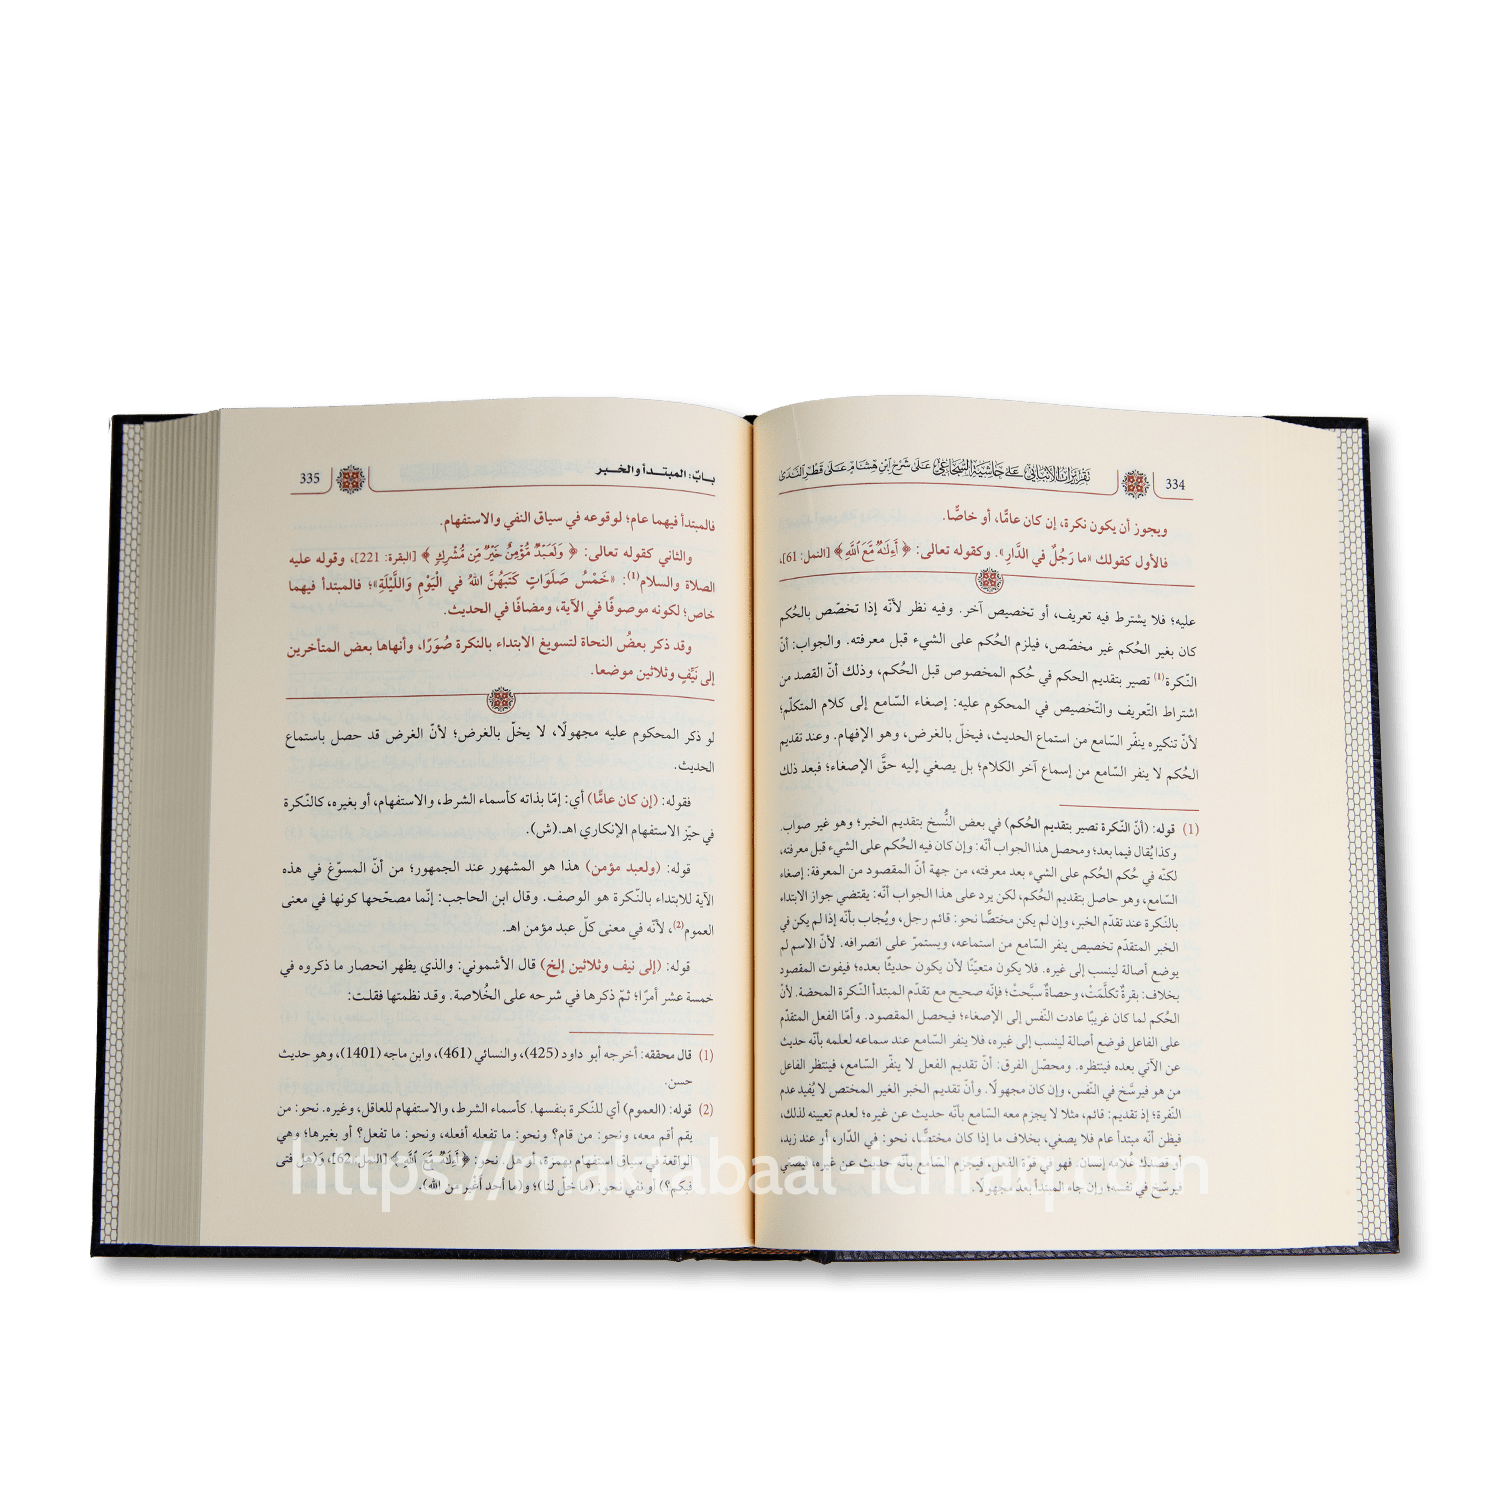 334
تقريرات الأنبابي على حاشية السجاعي على شرح ابن هشام على قطر الندى
ويجوز أن يكون نكرة، إن كان عامًّا، أو خاصًّا.
فالأول كقولك «ما رَجُلٌ في الدَّارِ». وكقوله تعالى: ﴿ أَءِلَٰهٌ مَّعَ ٱللَّهِ ﴾ [النمل: 61]،
عليه؛ فلا يشترط فيه تعريف، أو تخصيص آخر. وفيه نظر لأنّه إذا تخصّص بالحُكم
كان بغير الحُكم غير مخصّص، فيلزم الحُكم على الشيء قبل معرفته. والجواب: أنّ
النّكرة(1) تصير بتقديم الحكم في حُكم المخصوص قبل الحُكم، وذلك أنّ القصد من
اشتراط التّعريف والتّخصيص في المحكوم عليه: إصغاء السّامع إلى كلام المتكلّم؛
لأنّ تنكيره ينفّر السّامع من استماع الحديث، فيخلّ بالغرض، وهو الإفهام. وعند تقديم
الحُكم لا ينفر السّامع من إسماع آخر الكلام؛ بل يصغي إليه حقَّ الإصغاء؛ فبعد ذلك
(1) قوله: (أنّ النّكرة تصير بتقديم الحُكم) في بعض النُّسخ بتقديم الخبر؛ وهو غير صواب.
وكذا يُقال فيما بعد؛ ومحصل هذا الجواب أنّه: وإن كان فيه الحُكم على الشيء قبل معرفته،
لكنّه في حُكم الحُكم على الشيء بعد معرفته، من جهة أنّ المقصود من المعرفة: إصغاء
السّامع، وهو حاصل بتقديم الحُكم، لكن يرد على هذا الجواب أنّه: يقتضي جواز الابتداء
بالنّكرة عند تقدّم الخبر، وإن لم يكن مختصًّا نحو: قائم رجل، ويُجاب بأنّه إذا لم يكن في
الخبر المتقدّم تخصيص ينفر السّامع من استماعه، ويستمرّ على انصرافه. لأنّ الاسم لم
يوضع أصالة لينسب إلى غيره. فلا يكون متعيّنًا لأن يكون حديثًا بعده؛ فيفوت المقصود
بخلاف: بقرةٌ تكلَّمَتْ، وحصاةٌ سبَّحتْ؛ فإنّه صحيح مع تقدّم المبتدأ النّكرة المحضة. لأنّ
الحُكم لما كان غريبًا عادت النّفس إلى الإصغاء؛ فيحصل المقصود. وأمّا الفعل المتقدّم
على الفاعل فوضع أصالة لينسب إلى غيره، فلا ينفر السّامع عند سماعه لعلمه بأنّه حديث
عن الآتي بعده فينتظره. ومحصّل الفرق: أنّ تقديم الفعل لا ينفّر السّامع، فينتظر الفاعل
من هو فيرسَّخ في النّفس، وإن كان مجهولًا. وأنّ تقديم الخبر الغير المختص لا يُفيد عدم
النّفرة؛ إذ تقديم: قائم، مثلا لا يجزم معه السّامع بأنّه حديث عن غيره؛ لعدم تعيينه لذلك،
فيظن أنّه مبتدأ عام فلا يصغي، بخلاف ما إذا كان مختصًّا، نحو: في الدّار، أو عند زيد،
أو قصدك غُلامه إنسان. فهو في قوّة الفعل، فيجزم السّامع بأنّه حديث عن غيره، فيصغي
فيرسّخ في نفسه؛ وإن جاء المبتدأ بعد مجهولًا.
باب: المبتدأ والخبر
335
فالمبتدأ فيهما عام؛ لوقوعه في سياق النفي والاستفهام.
والثاني كقوله تعالى: ﴿ وَلَعَبْدٌ مُّؤْمِنٌ خَيْرٌ مِّن مُّشْرِكٍ ﴾ [البقرة: 221]، وقوله عليه
الصلاة والسلام(1): «خَمْسُ صَلَوَاتٍ كَتَبَهُنَّ اللهُ في الْيَوْمِ وَاللَّيْلَةِ»؛ فالمبتدأ فيهما
خاص؛ لكونه موصوفًا في الآية، ومضافًا في الحديث.
وقد ذكر بعضُ النحاة لتسويغ الابتداء بالنكرة صُوَرًا، وأنهاها بعض المتأخرين
إلى نَيِّفٍ وثلاثين موضعا.
لو ذكر المحكوم عليه مجهولًا، لا يخلّ بالغرض؛ لأنّ الغرض قد حصل باستماع
الحديث.
فقوله: (إن كان عامًّا) أي: إمّا بذاته كأسماء الشرط، والاستفهام، أو بغيره، كالنّكرة
في حيّز الاستفهام الإنكاري اهـ.(ش).
قوله: (ولعبد مؤمن) هذا هو المشهور عند الجمهور؛ من أنّ المسوّغ في هذه
الآية للابتداء بالنّكرة هو الوصف. وقال ابن الحاجب: إنّما مصحّحها كونها في معنى
العموم(2)، لأنّه في معنى كلّ عبد مؤمن اهـ.
قوله: (إلى نيف وثلاثين إلخ) قال الأشموني: والذي يظهر انحصار ما ذكروه في
خمسة عشر أمرًا؛ ثمّ ذكرها في شرحه على الخُلاصة. وقد نظمتها فقلت:
(1) قال محققه: أخرجه أبو داود (425)، والنسائي (461)، وابن ماجه (1401)، وهو حديث
حسن.
(2) قوله: (العموم) أي للنّكرة بنفسها. كأسماء الشرط، والاستفهام للعاقل، وغيره. نحو: من
يقم أقم معه، ونحو: من قام؟ ونحو: ما تفعله أفعله، ونحو: ما تفعل؟ أو بغيرها؛ وهي
الواقعة في سياق استفهام بهمزة، أو هل، نحو: ﴿ أَءِلَٰهٌ مَّعَ ٱللَّهِ ﴾ [النمل: 62]، وَ(هل فتى
فيكم؟) أو نفي نحو: (ما خلّ لنا)؛ و(ما أحد أغير من الله).
https://maktabaal-ichraq.com